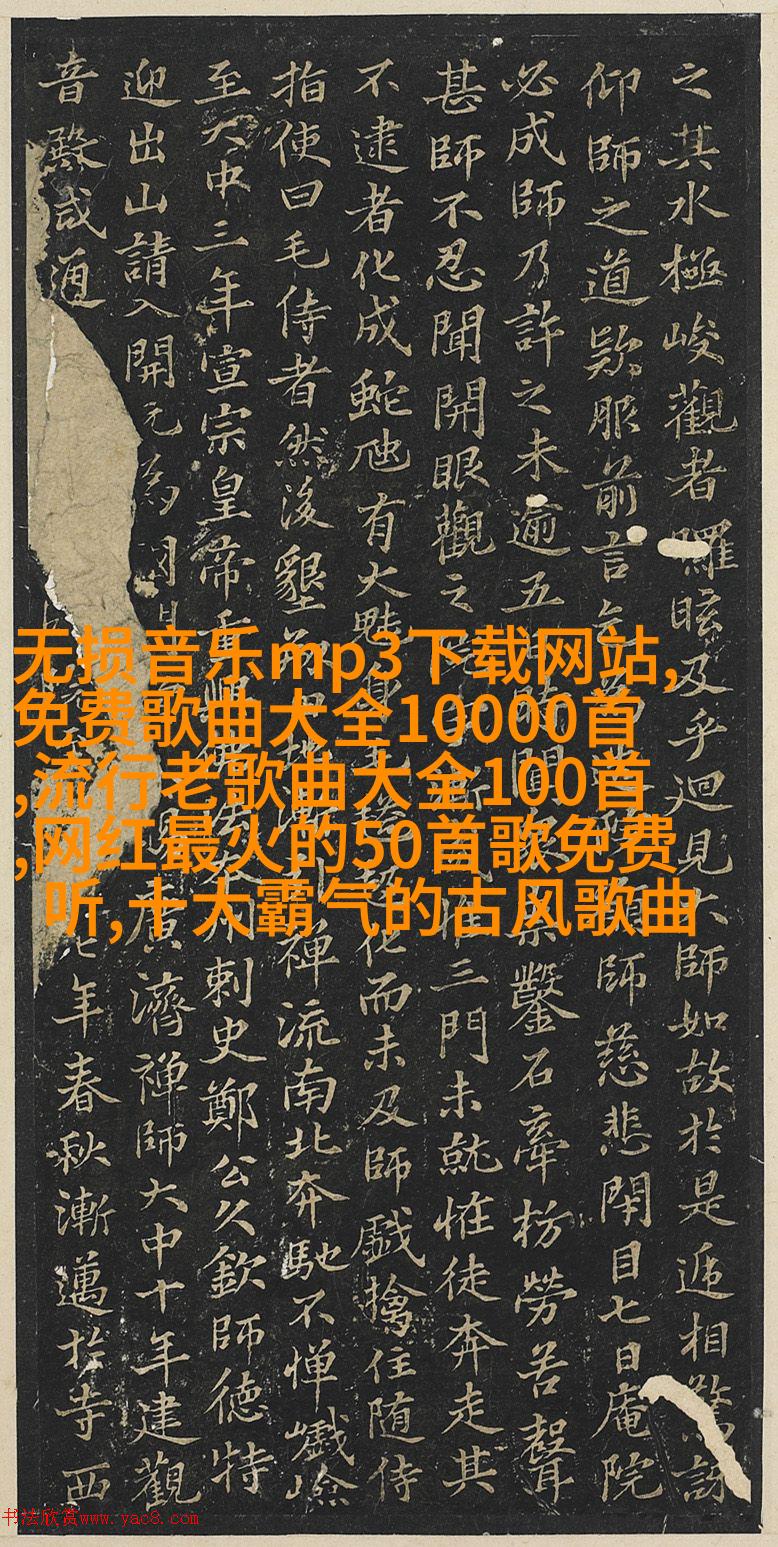 之其水極峻觀者 眩及乎迴見大師如故於是遞相驚訝
仰師之道欵服前言 師慈悲閑目七日庵院
必成師乃許之未逾五 鑿石牽枋勞苦聲
甚師不忍聞開眼觀之 三門未就惟徒奔走其
不逮者化成蛇虺有大魅 化而未及師戲擒住随侍
指使曰毛侍者然後墾 禪流南北奔馳不憚巇嶮
至大中三年宣宗皇帝 刺史鄭公久欽師德特
迎出山請入開元為 廣濟禪師大中十年建觀
音殿咸通 七年春秋漸邁於寺西
无损音乐mp3下载网站,
免费歌曲大全10000首
,流行老歌曲大全100首
,网红最火的50首歌免费
听,十大霸气的古风歌曲
书法欣赏www.yac8.com